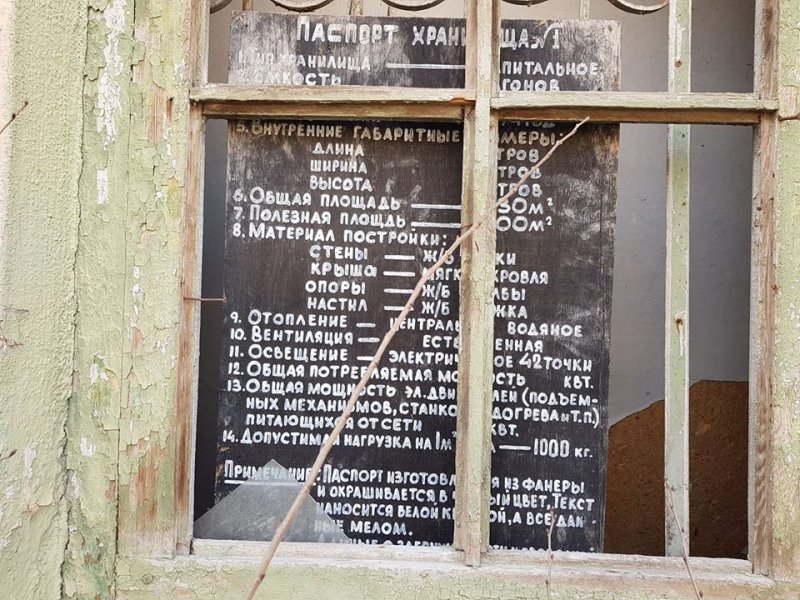 ПАСПОРТ ХРАНИ ЩА №1
1. ТИП ХРАНИЛИЩА — ПИТАЛЬНОЕ
ЕМКОСТЬ ГОНОВ
5. ВНУТРЕННИЕ ГАБАРИТНЫЕ МЕРЫ:
ДЛИНА ТРОВ
ШИРИНА ТРОВ
ВЫСОТА ТРОВ
6. ОБЩАЯ ПЛОЩАДЬ — 30М²
7. ПОЛЕЗНАЯ ПЛОЩДЬ — 00М²
8. МАТЕРИАЛ ПОСТРОЙКИ:
СТЕНЫ — Ж/Б КИ
КРЫША — МЯГК КРОВЛЯ
ОПОРЫ — Ж/Б ЛБЫ
НАСТИЛ — Ж/Б ЖКА
9. ОТОПЛЕНИЕ — ЦЕНТРАЛЬ ВОДЯНОЕ
10. ВЕНТИЛЯЦИЯ — ЕСТЕ ЕННАЯ
11. ОСВЕЩЕНИЕ — ЭЛЕКТРИЧ ОЕ 42 ТОЧКИ
12. ОБЩАЯ ПОТРЕБЛЯЕМАЯ МО НОСТЬ КВТ.
13. ОБЩАЯ МОЩНОСТЬ ЭЛ. ДВИ ЛЕЙ (ПОДЪЕМ-
НЫХ МЕХАНИЗМОВ, СТАНКО ДОГРЕВА И Т.П.)
ПИТАЮЩИХСЯ ОТ СЕТИ КВТ.
14. ДОПУСТИМАЯ НАГРУЗКА НА 1М² А — 1000 КГ.
ПРИМЕЧАНИЕ: ПАСПОРТ ИЗГОТОВЛ Я ИЗ ФАНЕРЫ
И ОКРАШИВАЕТСЯ В Ч ЫЙ ЦВЕТ, ТЕКСТ
НАНОСИТСЯ БЕЛОЙ КР ОЙ, А ВСЕ ДАН
НЫЕ МЕЛОМ.